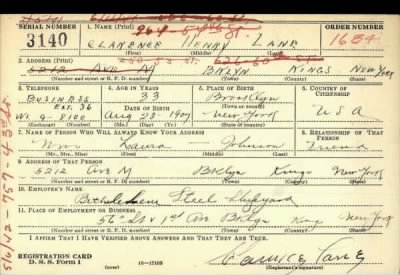 SERIAL NUMBER
1. NAME (Print)
ORDER NUMBER
3140
CLARENCE HENRY LANE
1634
2. ADDRESS (Print)
5212 AVE M BKLYN KINGS NEW YORK
(Number and street or R. F. D. number) (Town) (County) (State)
3. TELEPHONE
4. AGE IN YEARS
5. PLACE OF BIRTH
6. COUNTRY OF CITIZENSHIP
BUSINESS
Ext. 36
33
Brooklyn
DATE OF BIRTH
(Town or county)
Wi 9-8100
Aug 23 - 1907
New York
USA
(Exchange) (No.)
(Mo.) (Day) (Yr.)
(State or country)
7. NAME OF PERSON WHO WILL ALWAYS KNOW YOUR ADDRESS
8. RELATIONSHIP OF THAT PERSON
Mrs Laura Johnson
Friend
(Mr., Mrs., Miss) (First) (Middle) (Last)
9. ADDRESS OF THAT PERSON
5212 Ave M Bklyn Kings New York
(Number and street or R. F. D. number) (Town) (County) (State)
10. EMPLOYER'S NAME
Bethlehem Steel Shipyard
11. PLACE OF EMPLOYMENT OR BUSINESS
56th St & 1st Ave Bklyn Kings New York
(Number and street or R. F. D. number) (Town) (County) (State)
I AFFIRM THAT I HAVE VERIFIED ABOVE ANSWERS AND THAT THEY ARE TRUE.
REGISTRATION CARD
D. S. S. Form 1
(over)
16—17105
Clarence Lane
(Registrant's signature)